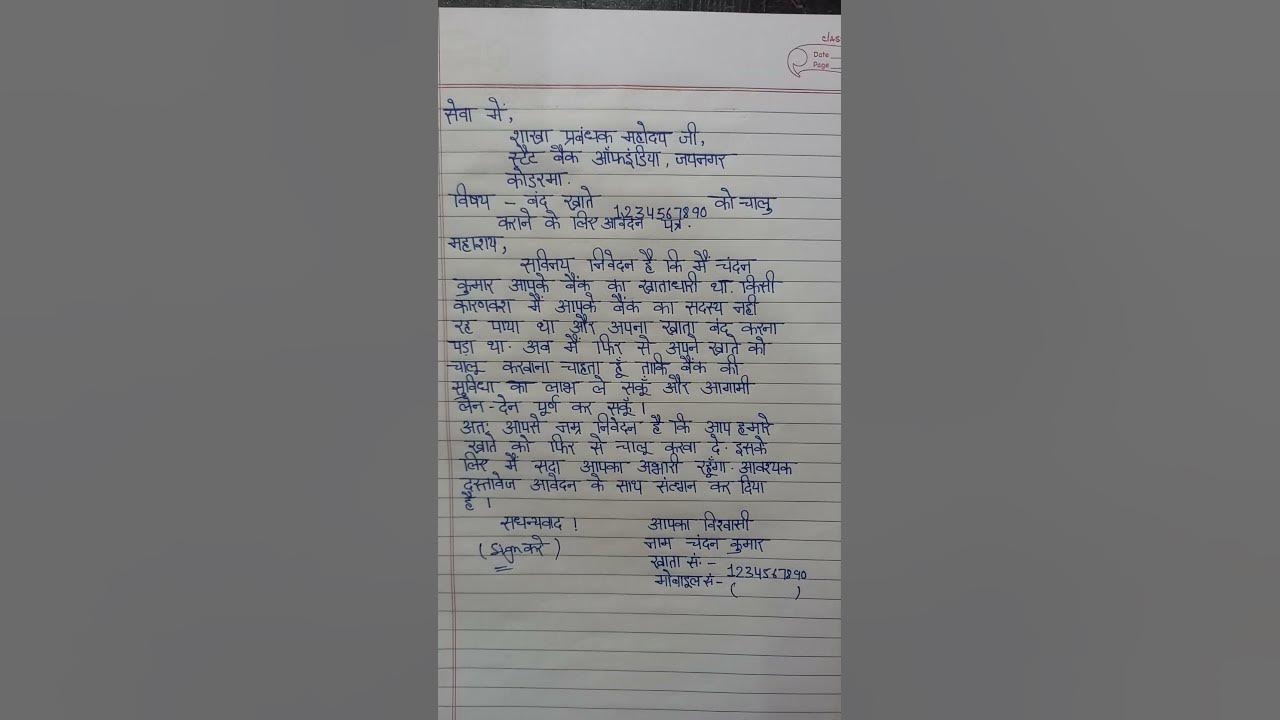 CLAS
Date
Page
सेवा में,
शाखा प्रबंधक महोदय जी,
स्टैट बैंक ऑफइंडिया, जयनगर
कोडरमा.
विषय – बंद खाते 1234567890 को चालु
कराने के लिए आवेदन पत्र.
महाशय,
सविनय निवेदन है कि मैं चंदन
कुमार आपके बैंक का खाताधारी था. किसी
कारणवश मैं आपके बैंक का सदस्य नही
रह पाया था और अपना खाता बंद करना
पड़ा था. अब मैं फिर से अपने खाते को
चालू करवाना चाहता हूँ ताकि बैंक की
सुविधा का लाभ ले सकूँ और आगामी
लेन-देन पूर्ण कर सकूँ।
अत: आपसे नम्र निवेदन है कि आप हमारे
खाते को फिर से चालू करवा दे. इसके
लिए मैं सदा आपका अभारी रहूँगा. आवश्यक
दस्तावेज आवेदन के साथ संलग्न कर दिया
है।
सधन्यवाद ! आपका विश्वासी
(Sign करे) नाम चंदन कुमार
खाता सं. – 1234567890
मोबाइल सं – ( )